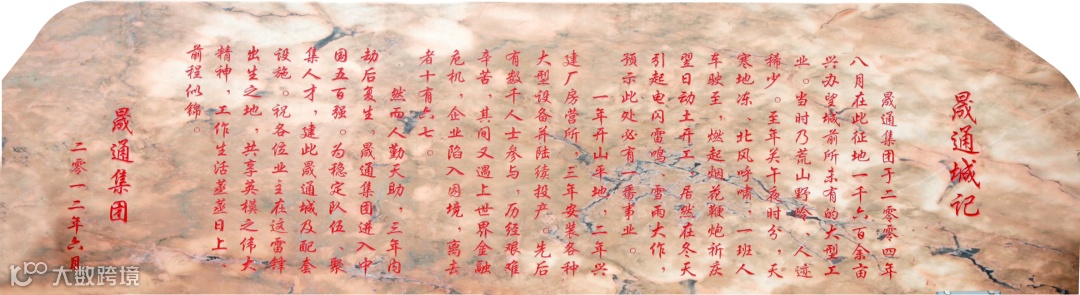 晟通城记
晟通集团于二零零四年
八月在此征地一千六百余亩
兴办望城前所未有的大型工
业。当时乃荒山野岭、人迹
稀少。至年关午夜时分，天
寒地冻、北风呼啸，一班人
车驶至，燃起烟花鞭炮祈庆
翌日动土开工，居然在冬天
引起电闪雷鸣、雪雨大作，
预示此处必有一番事业。
一年开山平地，二年兴
建厂房营所，三年安装各种
大型设备并陆续投产。先后
有数千人士参与，历经艰难
辛苦，其间又遇上世界金融
危机，企业陷入困境，离去
者十有六七。
然而人勤天助，三年内
动后复生，晟通集团进入中
国五百强。为稳定队伍、聚
集人才，建此晟通城及配套
设施。祝各位业主在这雷锋
出生之地，共享英模之伟大
精神，工作生活蒸蒸日上、
前程似锦。
晟通集团
二零一二年六月
大数跨境